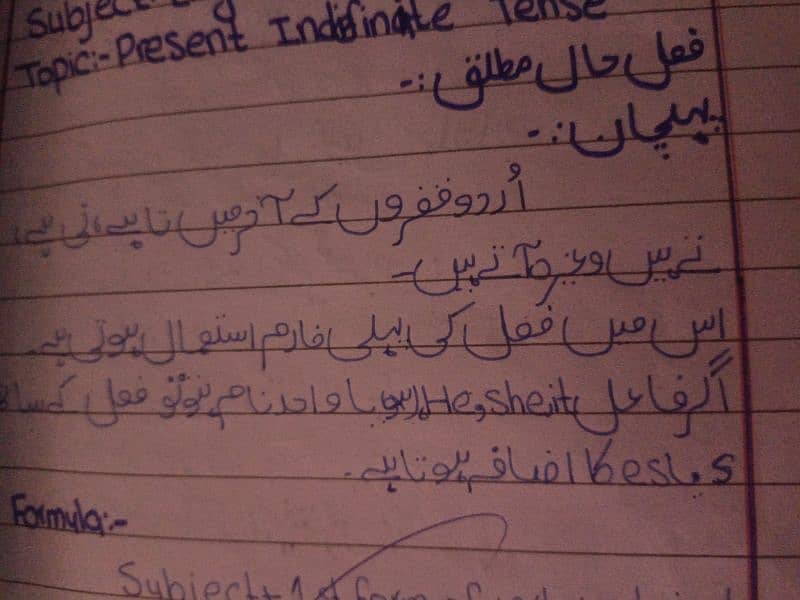 Subject:-
Topic:- Present Indifinate Tense
فعل حال مطلق :-
پہچان :-
اُردو فقروں کے آخر میں تا ہے، تی ہے،
تے ہیں وغیرہ آتے ہیں-
اس میں فعل کی پہلی فارم استعمال ہوتی ہے۔
اگر فاعل He, she, it ہو یا واحد نام ہو تو فعل کے ساتھ
s یا es کا اضافہ ہوتا ہے۔
Formula:-
Subject + 1st form of